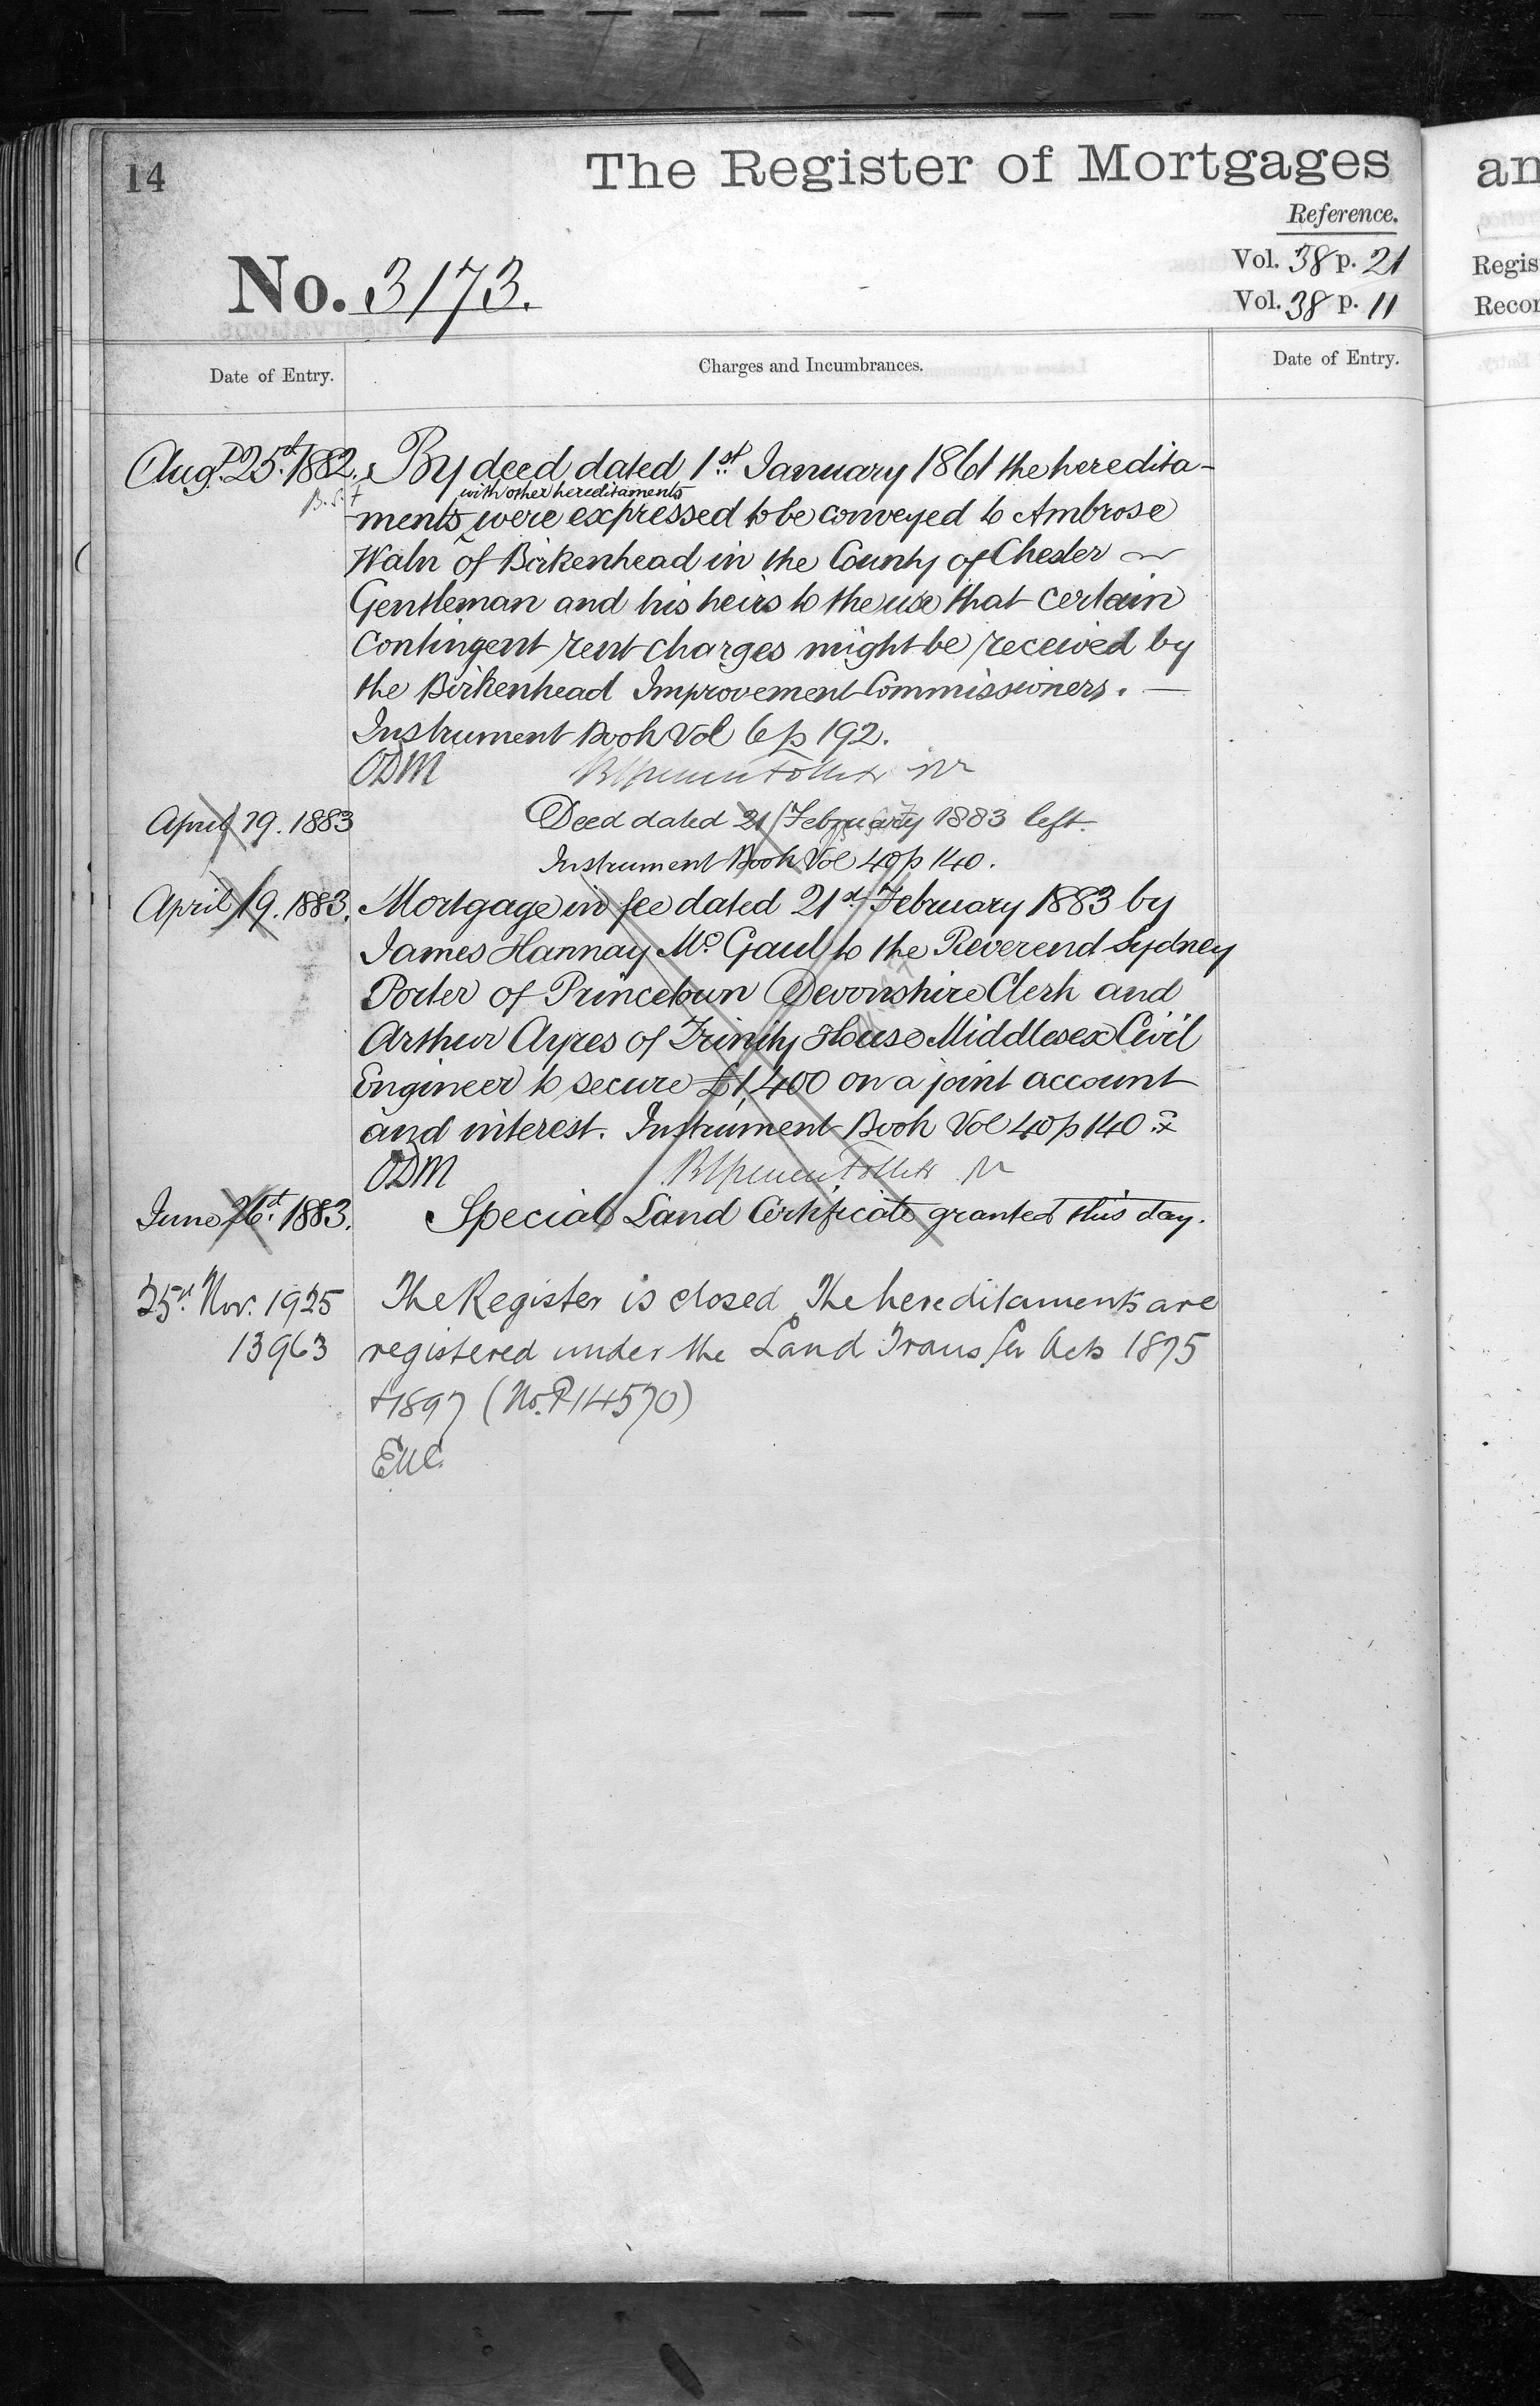 14
The Register of Mortgages
an
Reference.
No. 3173.
Vol. 38 p. 21
Regis
Vol. 38 p. 11
Recor
Date of Entry.
Charges and Incumbrances.
Date of Entry.
Augt. 25th. 1882. By deed dated 1st January 1861 the heredita-
with other hereditaments
ments were expressed to be conveyed to Ambrose
Waln of Birkenhead in the County of Chester
Gentleman and his heirs to the use that certain
contingent rent charges might be received by
the Birkenhead Improvement Commissioners. —
Instrument Book Vol 6 p 192.
ODM
April 19. 1883 Deed dated 21 February 1883 left.
Instrument Book Vol 40 p 140.
April 19. 1883. Mortgage in fee dated 21st February 1883 by
James Hannay Mc. Gaul to the Reverend Sydney
Porter of Princetown Devonshire Clerk and
Arthur Ayres of Trinity House Middlesex Civil
Engineer to secure £1,400 on a joint account
and interest. Instrument Book Vol 40 p 140
ODM
June 26th. 1883. Special Land Certificate granted this day.
25th Nov. 1925 The Register is closed. The hereditaments are
13963 registered under the Land Transfer Acts 1875
+ 1897 (No. P14570)